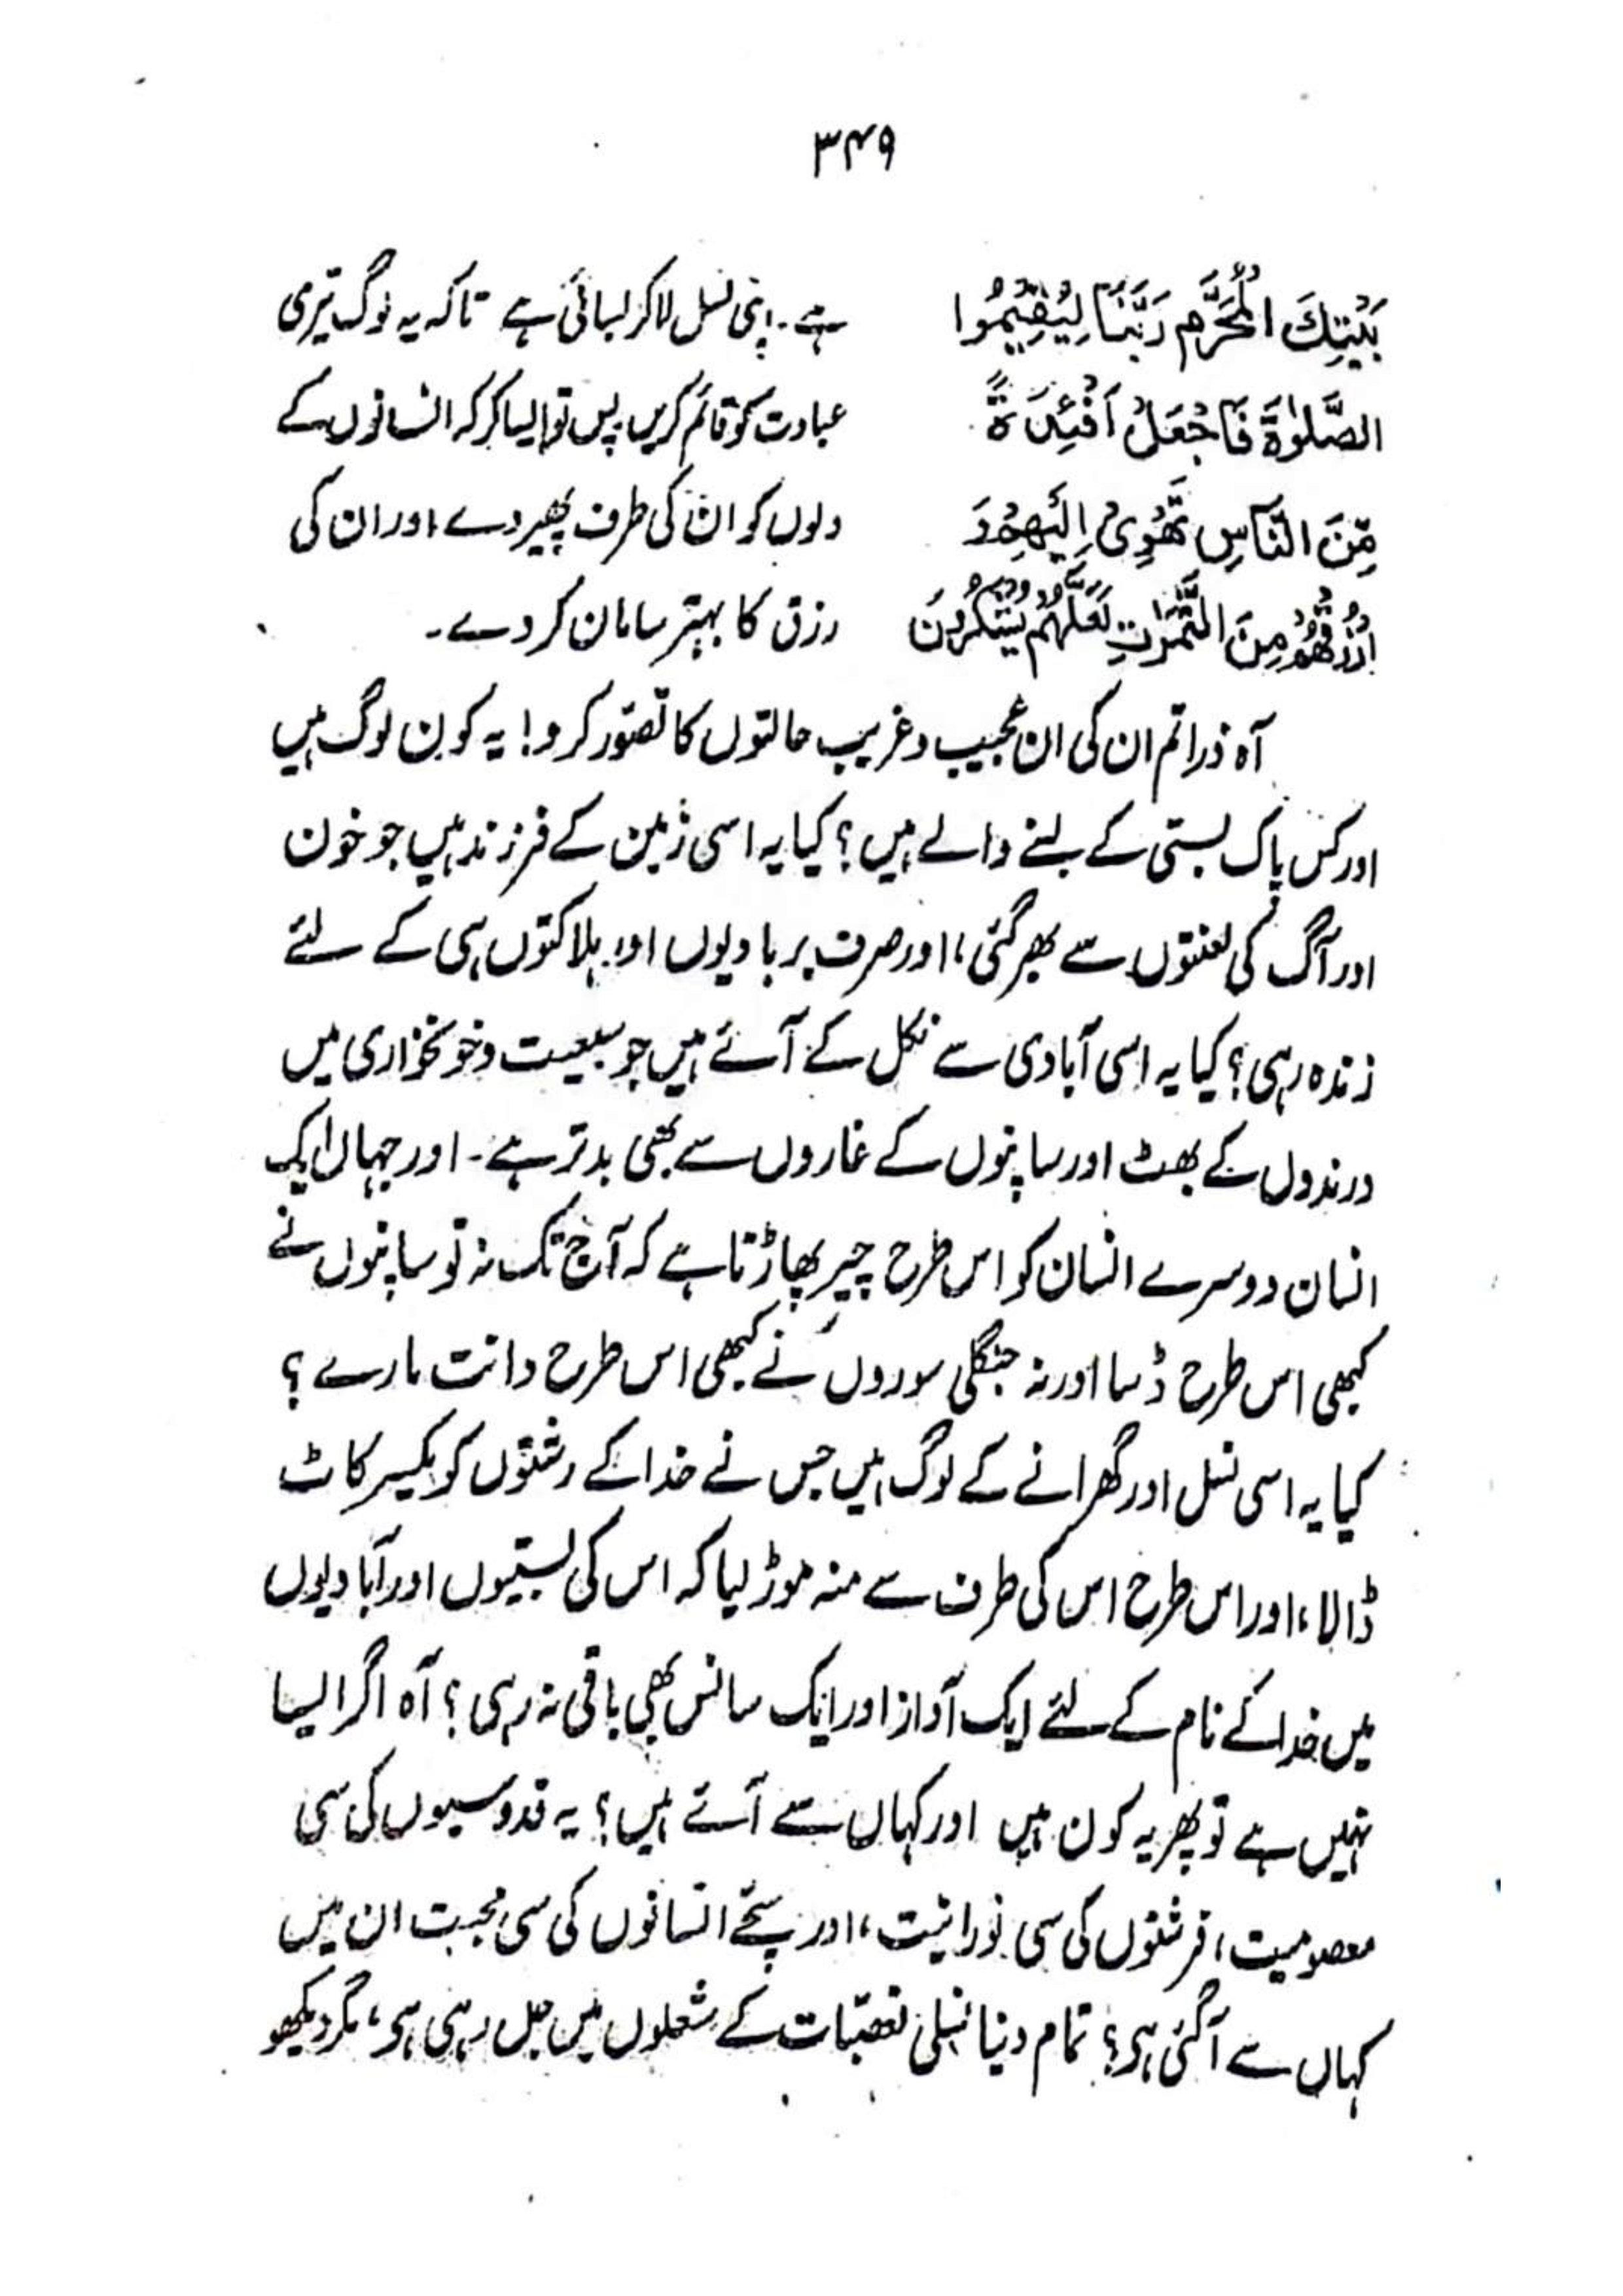 ۳۴۹
بَیْتِكَ الْمُحَرَّمِ رَبَّنَا لِیُقِیْمُوا
الصَّلٰوةَ فَاجْعَلْ اَفْئِدَةً
مِّنَ النَّاسِ تَهْوِیْ اِلَیْهِمْ وَ
ارْزُقْهُمْ مِنَ الثَّمَرٰتِ لَعَلَّهُمْ یَشْكُرُوْنَ
ہے۔ اپنی نسل لاکر بسائی ہے تاکہ یہ لوگ تیری
عبادت کو قائم کریں پس تو ایسا کر کہ انسانوں کے
دلوں کو ان کی طرف پھیر دے اور ان کی
رزق کا بہتر سامان کر دے۔
آہ ذرا تم ان کی ان عجیب و غریب حالتوں کا تصوّر کرو! یہ کون لوگ ہیں
اور کس پاک بستی کے بسنے والے ہیں؟ کیا یہ اسی زمین کے فرزند ہیں جو خون
اور آگ کی لعنتوں سے بھر گئی، اور صرف بربادیوں اور ہلاکتوں ہی کے لئے
زندہ رہی؟ کیا یہ اسی آبادی سے نکل کے آئے ہیں جو سبعیت و خونخواری میں
درندوں کے بھٹ اور سانپوں کے غاروں سے بھی بدتر ہے۔ اور جہاں ایک
انسان دوسرے انسان کو اس طرح چیر پھاڑتا ہے کہ آج تک نہ تو سانپوں نے
کبھی اس طرح ڈسا اور نہ جنگلی سوروں نے کبھی اس طرح دانت مارے؟
کیا یہ اسی نسل اور گھرانے کے لوگ ہیں جس نے خدا کے رشتوں کو یکسر کاٹ
ڈالا، اور اس طرح اس کی طرف سے منہ موڑ لیا کہ اس کی بستیوں اور آبادیوں
میں خدا کے نام کے لئے ایک آواز اور ایک سانس بھی باقی نہ رہی؟ آہ اگر ایسا
نہیں ہے تو پھر یہ کون ہیں اور کہاں سے آئے ہیں؟ یہ قدوسیوں کی سی
معصومیت، فرشتوں کی سی نورانیت، اور سچّے انسانوں کی سی محبت ان میں
کہاں سے آگئی ہی؟ تمام دنیا نسلی تعصبّات کے شعلوں میں جل رہی ہی، مگر دیکھو